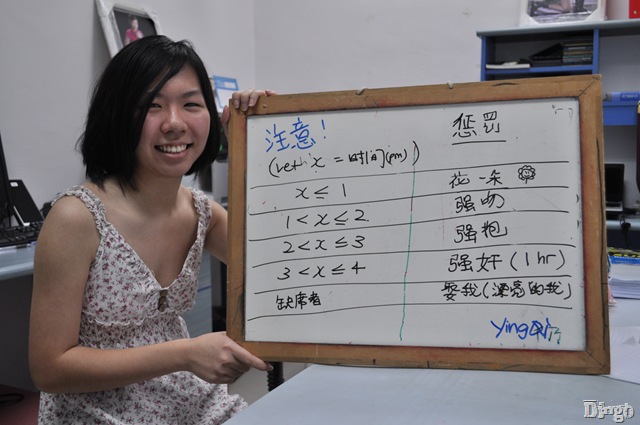 注意! 惩罚
(let x = 时间(pm))
x ≤ 1 花一朵
1 < x ≤ 2 强吻
2 < x ≤ 3 强抱
3 < x ≤ 4 强奸 (1 hr)
缺席者 娶我(漂亮的我)
YingQi